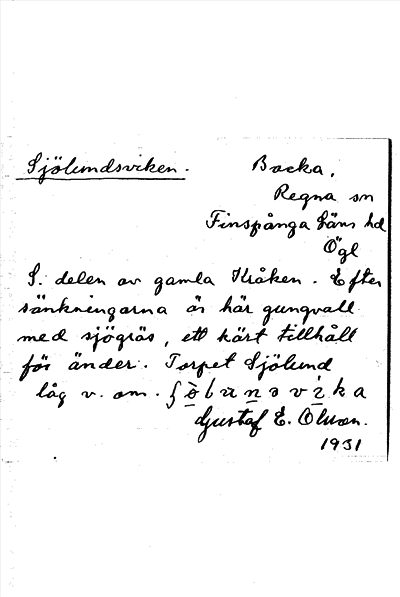 Sjölundsviken.
Backa,
Regna sn
Finspånga läns hd
Ögl
S. delen av gamla Kråken. Efter
sänkningarna är här gungvall
med sjögräs, ett kärt tillhåll
för änder. Torpet Sjölund
låg v. om.
Gustaf E. Olsson.
1931